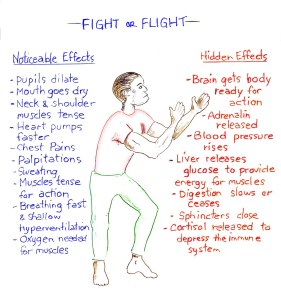 FIGHT OR FLIGHT
Noticeable Effects
- Pupils dilate
- Mouth goes dry
- Neck & shoulder
muscles tense
- Heart pumps
faster
- Chest Pains
- Palpitations
- Sweating
- Muscles tense
for action
- Breathing fast
& shallow
hyperventilation
- Oxygen needed
for muscles
Hidden Effects
- Brain gets body
ready for
action
- Adrenalin
released
- Blood pressure
rises
- Liver releases
glucose to provide
energy for muscles
- Digestion slows or
ceases
- Sphincters close
- Cortisol released to
depress the immune
system